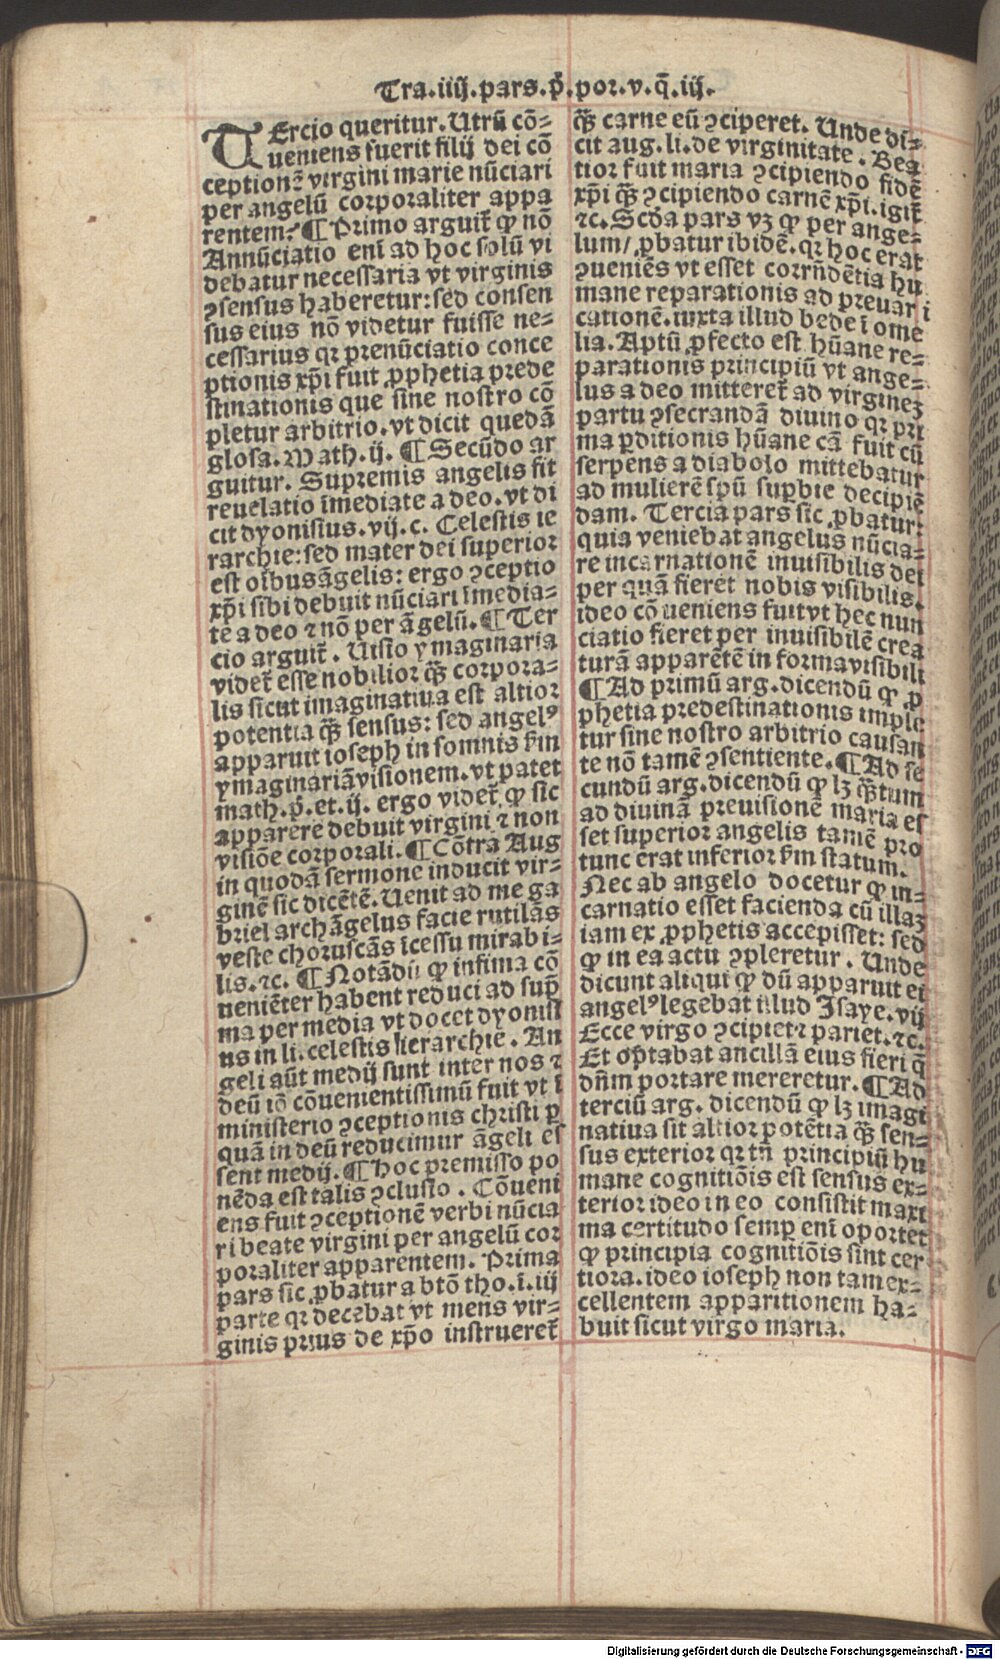 Tra.iiij.pars.p̄.por.v.q̄.iij.
TErcio queritur. Utrū cō-
ueniens fuerit filij dei cō
ceptionē virgini marie nūciari
per angelū corporaliter appa
rentem? ¶ Primo arguit᷑ ꝙ nō
Annūciatio eni ad hoc solū vi
debatur necessaria vt virginis
ꝯsensus haberetur: sed consen
sus eius nō videtur fuisse ne-
cessarius qr prenūciatio conce
ptionis xp̄i fuit ꝓphetia prede
stinationis que sine nostro cō
pletur arbitrio. vt dicit quedā
glosa. Math. ij. ¶ Secūdo ar
guitur. Supremis angelis fit
reuelatio īmediate a deo. vt di
cit dyonisius. vij. c. Celestis ie
rarchie: sed mater dei superior
est oībus āgelis: ergo ꝯceptio
xp̄i sibi debuit nūciari īmedia-
te a deo ⁊ nō per āgelū. ¶ Ter
cio arguit᷑. Uisio ymaginaria
videt᷑ esse nobilior qȝ̄ corpora-
lis sicut imaginatiua est altior
potentia qȝ̄ sensus: sed angelꝰ
apparuit ioseph in somnis k̄m
ymaginariā visionem. vt patet
math. p̄. et. ij. ergo videt᷑ ꝙ sic
apparere debuit virgini ⁊ non
visiōe corporali. ¶ Cōtra Aug
in quodā sermone inducit vir-
ginē sic dicētē. Uenit ad me ga
briel archāgelus facie rutilās
veste choruscās īcessu mirabi-
lis. ⁊c. ¶ Notādū ꝙ infima cō
ueniēter habent reduci ad sup̄
ma per media vt docet dyonisi
us in li. celestis hierarchie. An
geli aūt medij sunt inter nos ⁊
deū iō cōuenientissimū fuit vt ī
ministerio ꝯceptionis christi ꝑ
quā in deū reducimur āgeli es
sent medij. ¶ Hoc premisso po
nēda est talis ꝯclusio. Cōueni
ens fuit ꝯceptionē verbi nūcia
ri beate virgini per angelū cor
poraliter apparentem. Prima
pars sic ꝓbatur a btō tho. ī. iij
parte qr decebat vt mens vir-
ginis prius de xp̄o instrueret᷑
qȝ̄ carne eū ꝯciperet. Unde di-
cit aug. li. de virginitate. Bea
tior fuit maria ꝯcipiendo fidē
xp̄i qȝ̄ ꝯcipiendo carnē xp̄i. igit᷑
⁊c. Scd̄a pars vȝ ꝙ per ange-
lum/ ꝓbatur ibidē. qr hoc erat
ꝯueniēs vt esset corrn̄dētia hu
mane reparationis ad preuari
cationē. iuxta illud bede ī ome
lia. Aptū ꝓfecto est hūane re-
parationis principiū vt ange-
lus a deo mitteret᷑ ad virginez
partu ꝯsecrandā diuino qr pri
ma ꝑditionis hūane cā fuit cū
serpens a diabolo mittebatur
ad mulierē spū suꝑbie decipiē
dam. Tercia pars sic ꝓbatur:
quia veniebat angelus nūcia-
re incarnationē inuisibilis dei
per quā fieret nobis visibilis.
ideo cōueniens fuit vt hec nun
ciatio fieret per inuisibilē crea
turā apparētē in forma visibili
¶ Ad primū arg. dicendū ꝙ ꝓ
phetia predestinationis imple
tur sine nostro arbitrio causan
te nō tamē ꝯsentiente. ¶ Ad se
cundū arg. dicendū ꝙ lȝ qȝ̄tum
ad diuinā preuisionē maria es
set superior angelis tamē pro
tunc erat inferior k̄m statum.
Nec ab angelo docetur ꝙ in-
carnatio esset facienda cū illaȝ
iam ex ꝓphetis accepisset: sed
ꝙ in ea actu ꝯpleretur. Unde
dicunt aliqui ꝙ dū apparuit ei
angelꝰ legebat illud Isaye. vij
Ecce virgo ꝯcipiet ⁊ pariet. ⁊c.
Et optabat ancillā eius fieri q̄
dn̄m portare mereretur. ¶ Ad
terciū arg. dicendū ꝙ lȝ imagi
natiua sit altior potētia qȝ̄ sen-
sus exterior qr tn̄ principiū hu
mane cognitiōis est sensus ex-
terior ideo in eo consistit maxi
ma certitudo semp eni oportet
ꝙ principia cognitiōis sint cer
tiora. ideo ioseph non tam ex-
cellentem apparitionem ha-
buit sicut virgo maria.
Digitalisierung gefördert durch die Deutsche Forschungsgemeinschaft - DFG